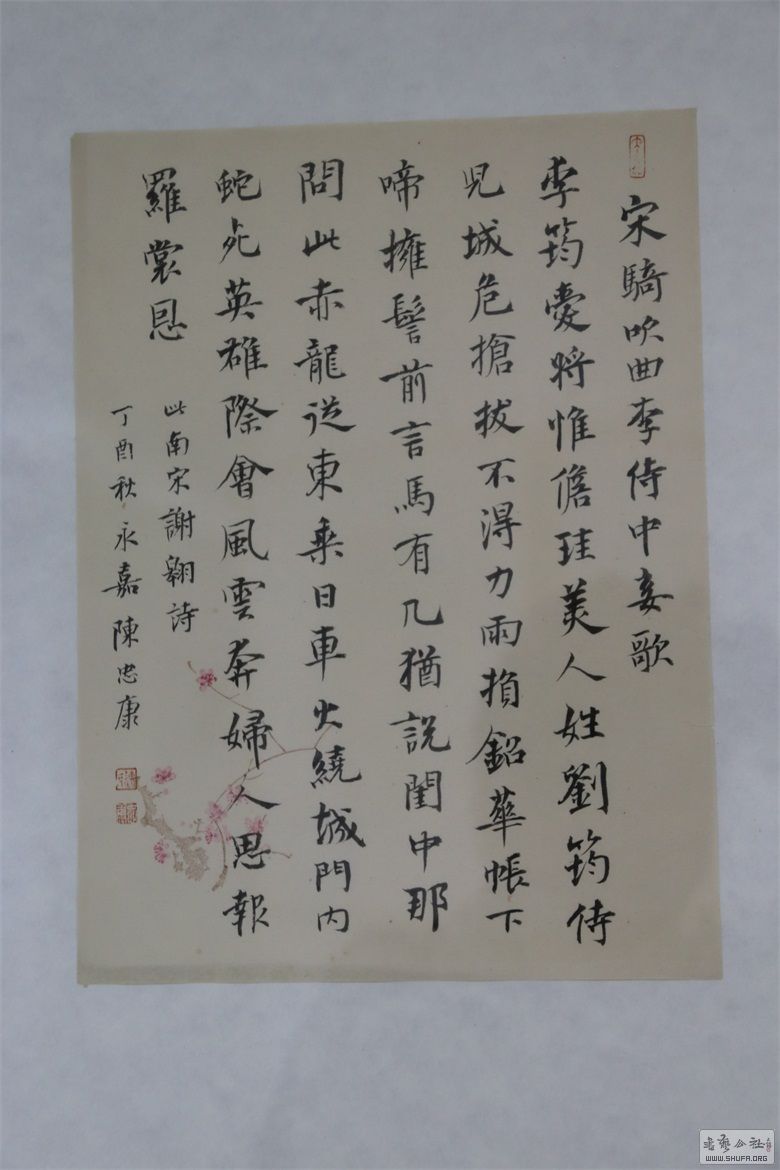 宋騎吹曲李侍中妾歌
李筠愛將惟儋珪美人姓劉筠侍
児城危搶拔不得力雨損鉛華帳下
啼擁髻前言馬有几猶説閨中那
問此赤龍從東乘日車火繞城門内
蛇死英雄際會風雲奔婦人思報
羅裳恩
此南宋謝翱詩
丁酉秋永嘉陳忠康
書藝公社
WWW.SHUFA.ORG